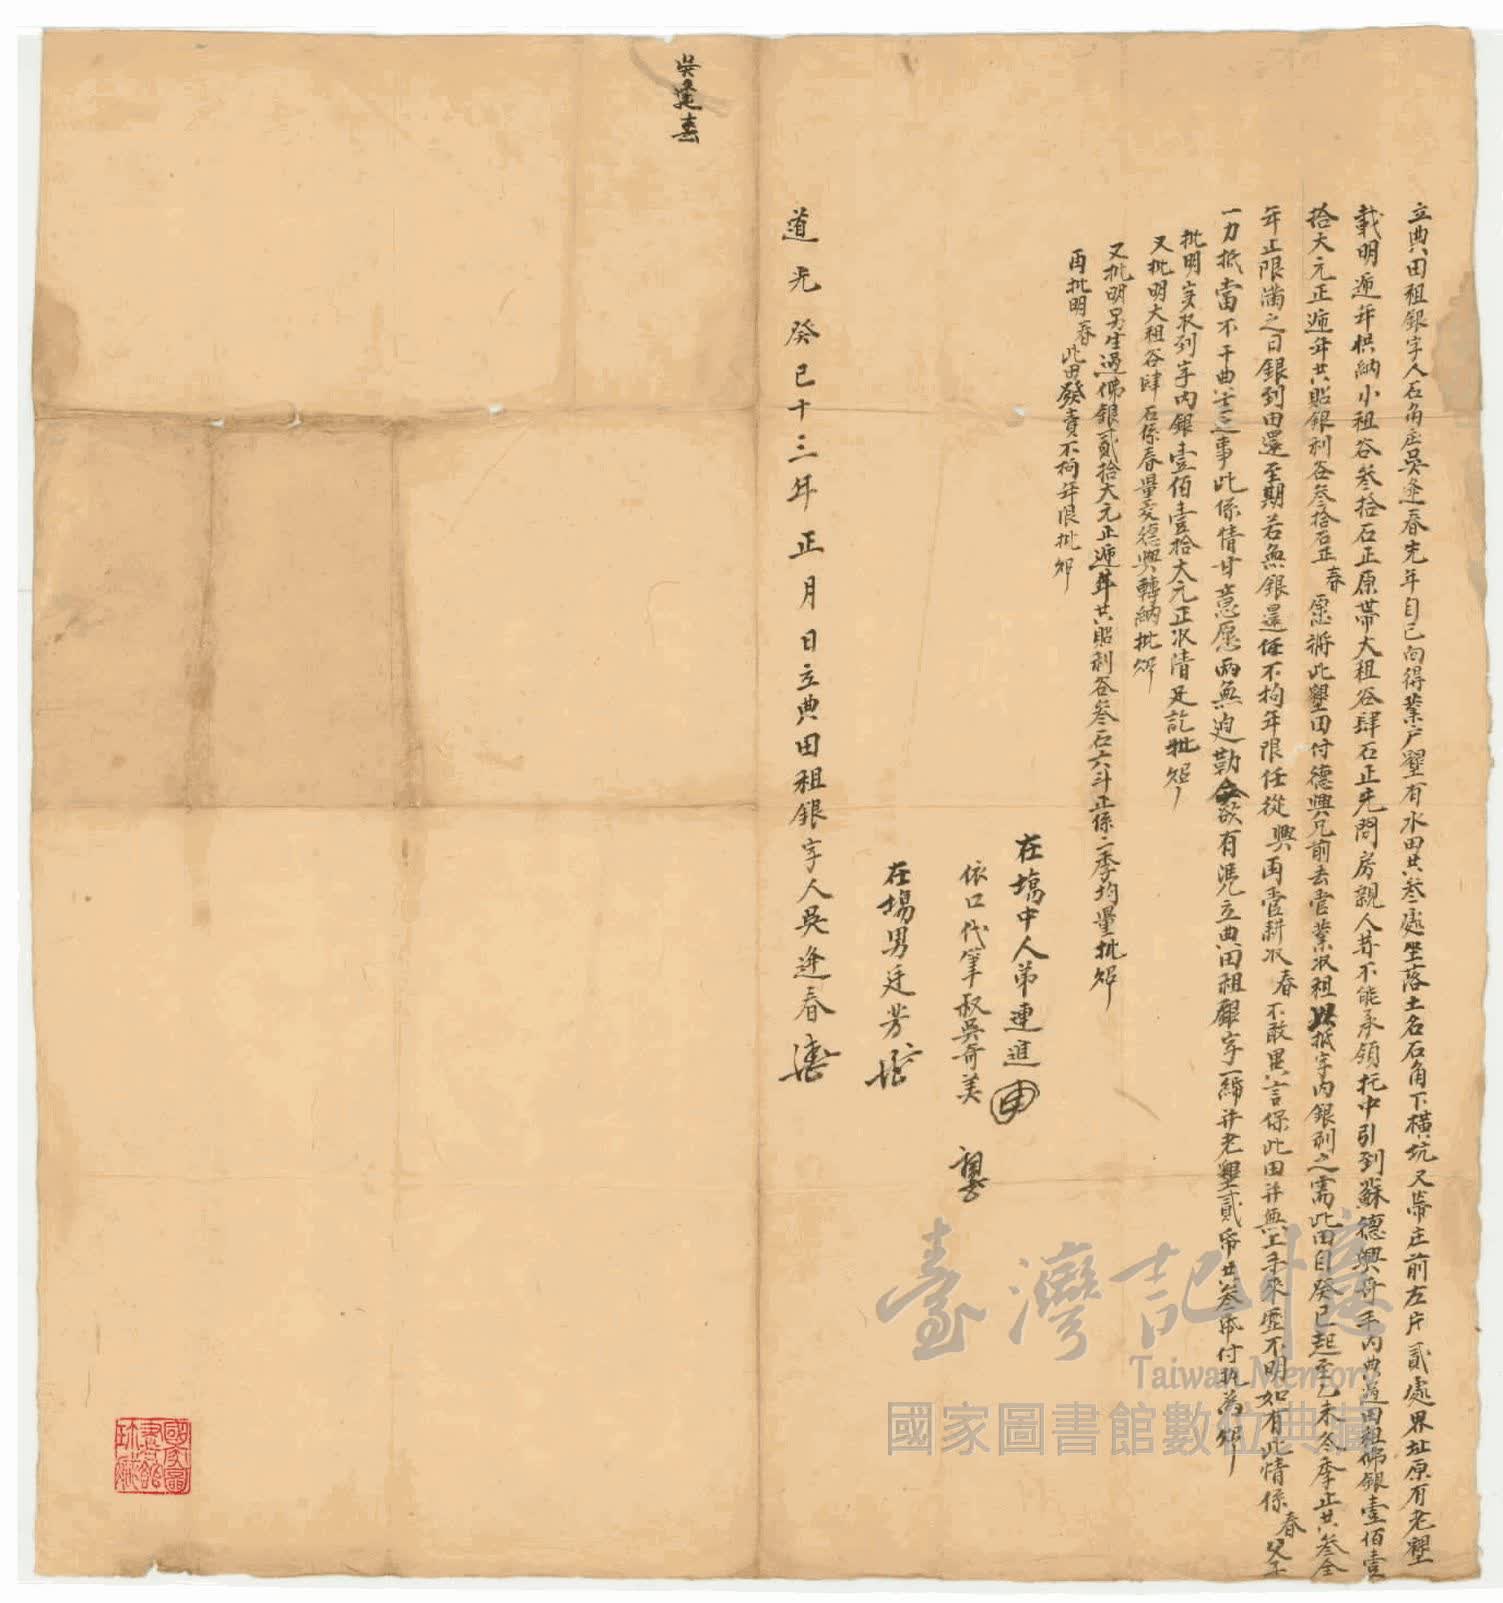 立典田租銀字人石角庄吳逢春先年自己向得業戶墾有水田共叁處坐落土名石角下橫坑又帶庄前左片貳處界址原有老墾
載明遞年供納小租谷叁拾石正原帶大租谷肆石正先問房親人等不能承領托中引到蘇德興哥手內典過田租佛銀壹佰壹
拾大元正遞年共貼銀利谷叁拾石正春愿將此墾田付德興兄前去管業收租以抵字內銀利之需此田自癸巳起至乙未冬季止共叁全
年正限滿之日銀到田還至期若無銀還任不拘年限任從興再管耕收春不敢異言保此田并無上手來歷不明如有此情係春父子
一力抵當不干典主之事此係情甘意愿兩無迫勒今欲有憑立典田租銀字一紙并老墾貳紙共叁紙付執為炤
批明實收到字內銀壹佰壹拾大元正收清足訖批炤
又批明大租谷肆石係春量交德興轉納批炤
又批明另生過佛銀貳拾大元正遞年共貼利谷叁石六斗正係二季均量批炤
再批明春此田發賣不拘年限批炤
在塲中人弟連進
依口代筆叔吳奇美
在場男廷芳
道光癸巳十三年正月日立典田租銀字人吳逢春
吳逢春
臺灣記憶
Taiwan Memory
國家圖書館數位典藏
國家圖書館珍藏